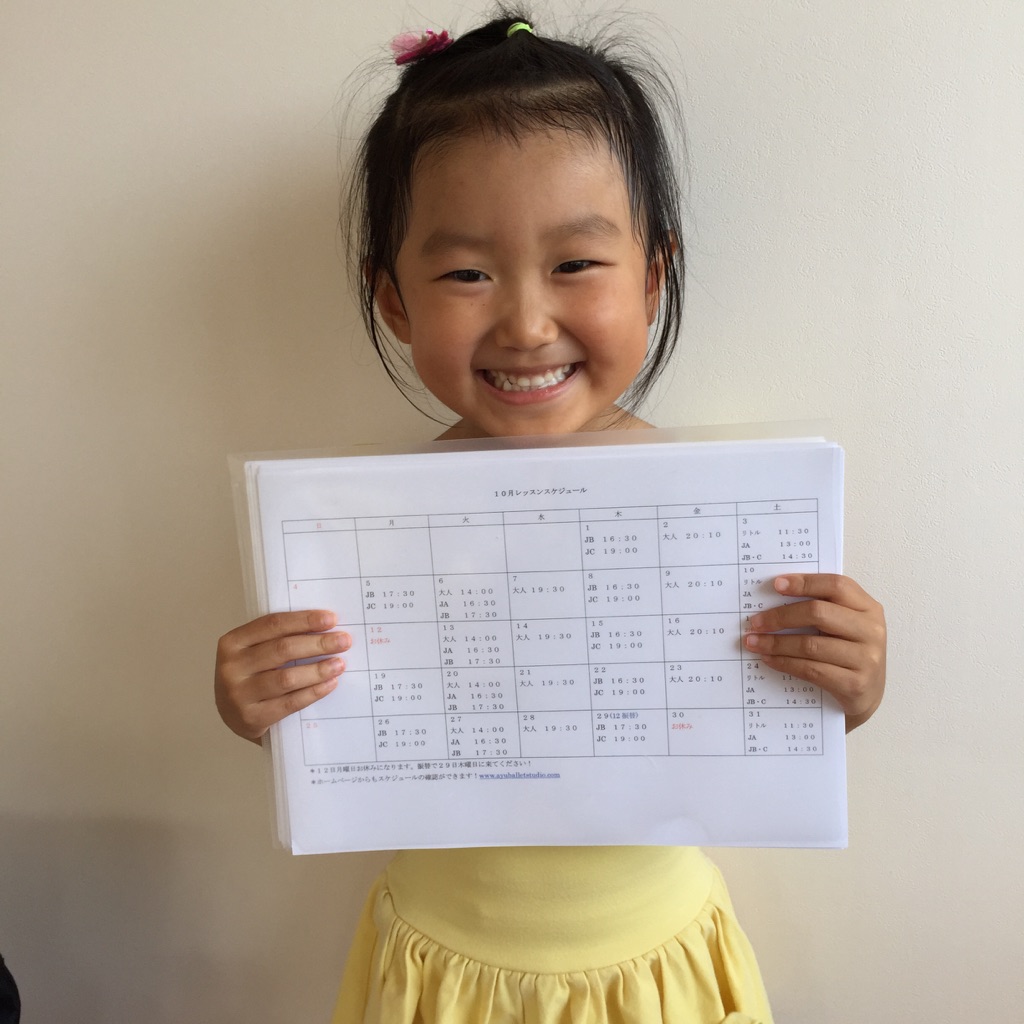 10月レッスンスケジュール
日 月 火 水 木 金 土
1 2 3
JB 16:30 大人 20:10 リトル 11:30
JC 19:00 JA 13:00
JB・C 14:30
4 5 6 7 8 9 10
JB 17:30 大人 14:00 大人 19:30 JB 16:30 大人 20:10 リトル
JC 19:00 JA 16:30 JC 19:00 JA
JB 17:30 JB・C
12 13 14 15 16
お休み 大人 14:00 大人 19:30 JB 16:30 大人 20:10
JA 16:30 JC 19:00
JB 17:30
19 20 21 22 23 24
JB 17:30 大人 14:00 大人 19:30 JB 16:30 大人 20:10 リトル 11:
JC 19:00 JA 16:30 JC 19:00 JA 13:00
JB 17:30 JB・C 14:30
25 26 27 28 29(12振替) 30 31
JB 17:30 大人 14:00 大人 19:30 JB 17:30 お休み リトル 11:30
JC 19:00 JA 16:30 JC 19:00 JA 13:00
JB 17:30 JB・C 14:30
*12日月曜日お休みになります。振替で29日木曜日に来てください！
*ホームページからもスケジュールの確認ができます！www.ayuballetstudio.com